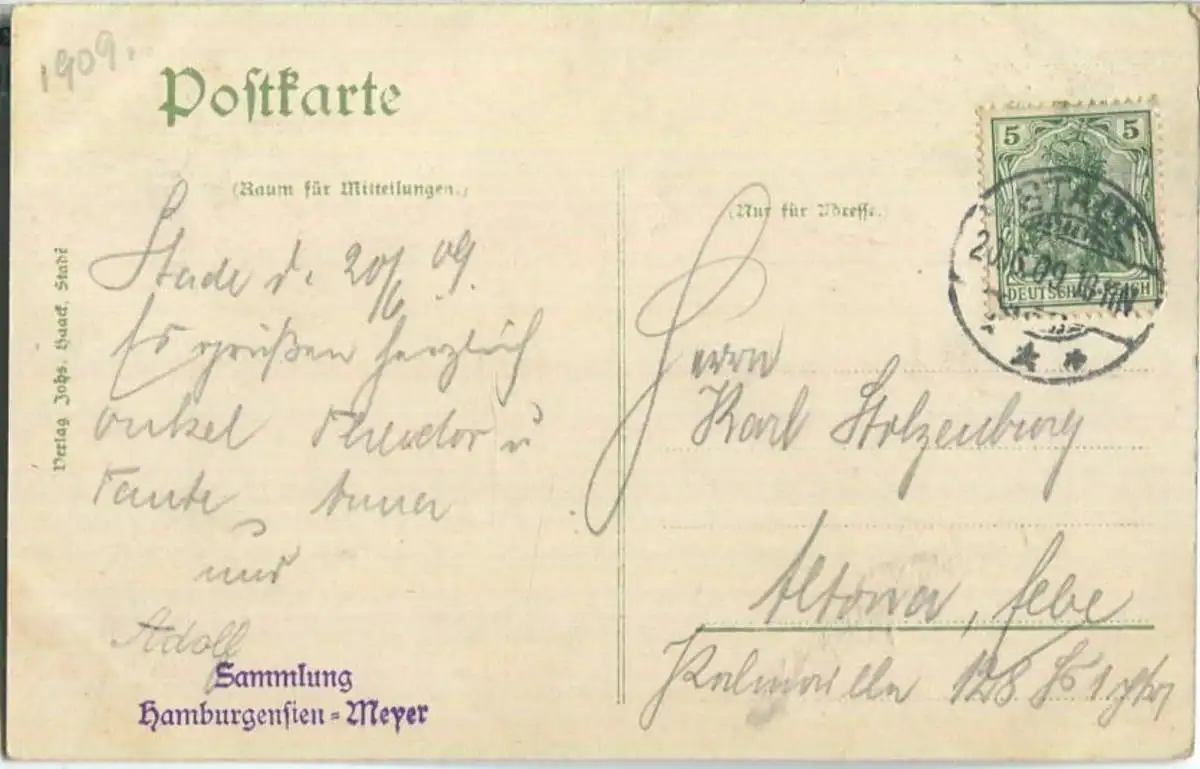 1909.
Postkarte
(Raum für Mitteilungen.)
(Nur für Adresse.)
Verlag Johs. Haack, Stade
5 5
DEUTSCHES REICH
STADE
20.6.09.
Stade d. 20/6 09.
Es grüßen herzlich
Onkel Theodor u
Tante Anna
und
Adolf
Herrn
Karl Stolzenburg
Altona, Elbe
128 Hs 1
Sammlung
Hamburgensien-Meyer